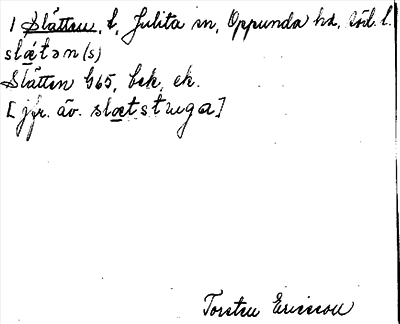 1 Slätten, t, Julita sn, Oppunda hd, Söd. l.
slǽtən (s)
Slätten G65, bek, ek.
[jfr. äv. slætstuga]
Torsten Ericsson